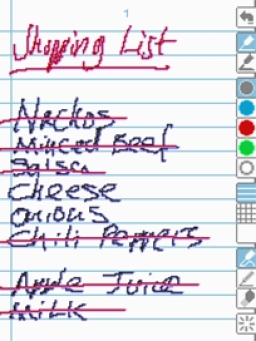 1
Shopping List
Nachos
Minced Beef
Salsa
Cheese
Onions
Chili Peppers
Apple Juice
Milk